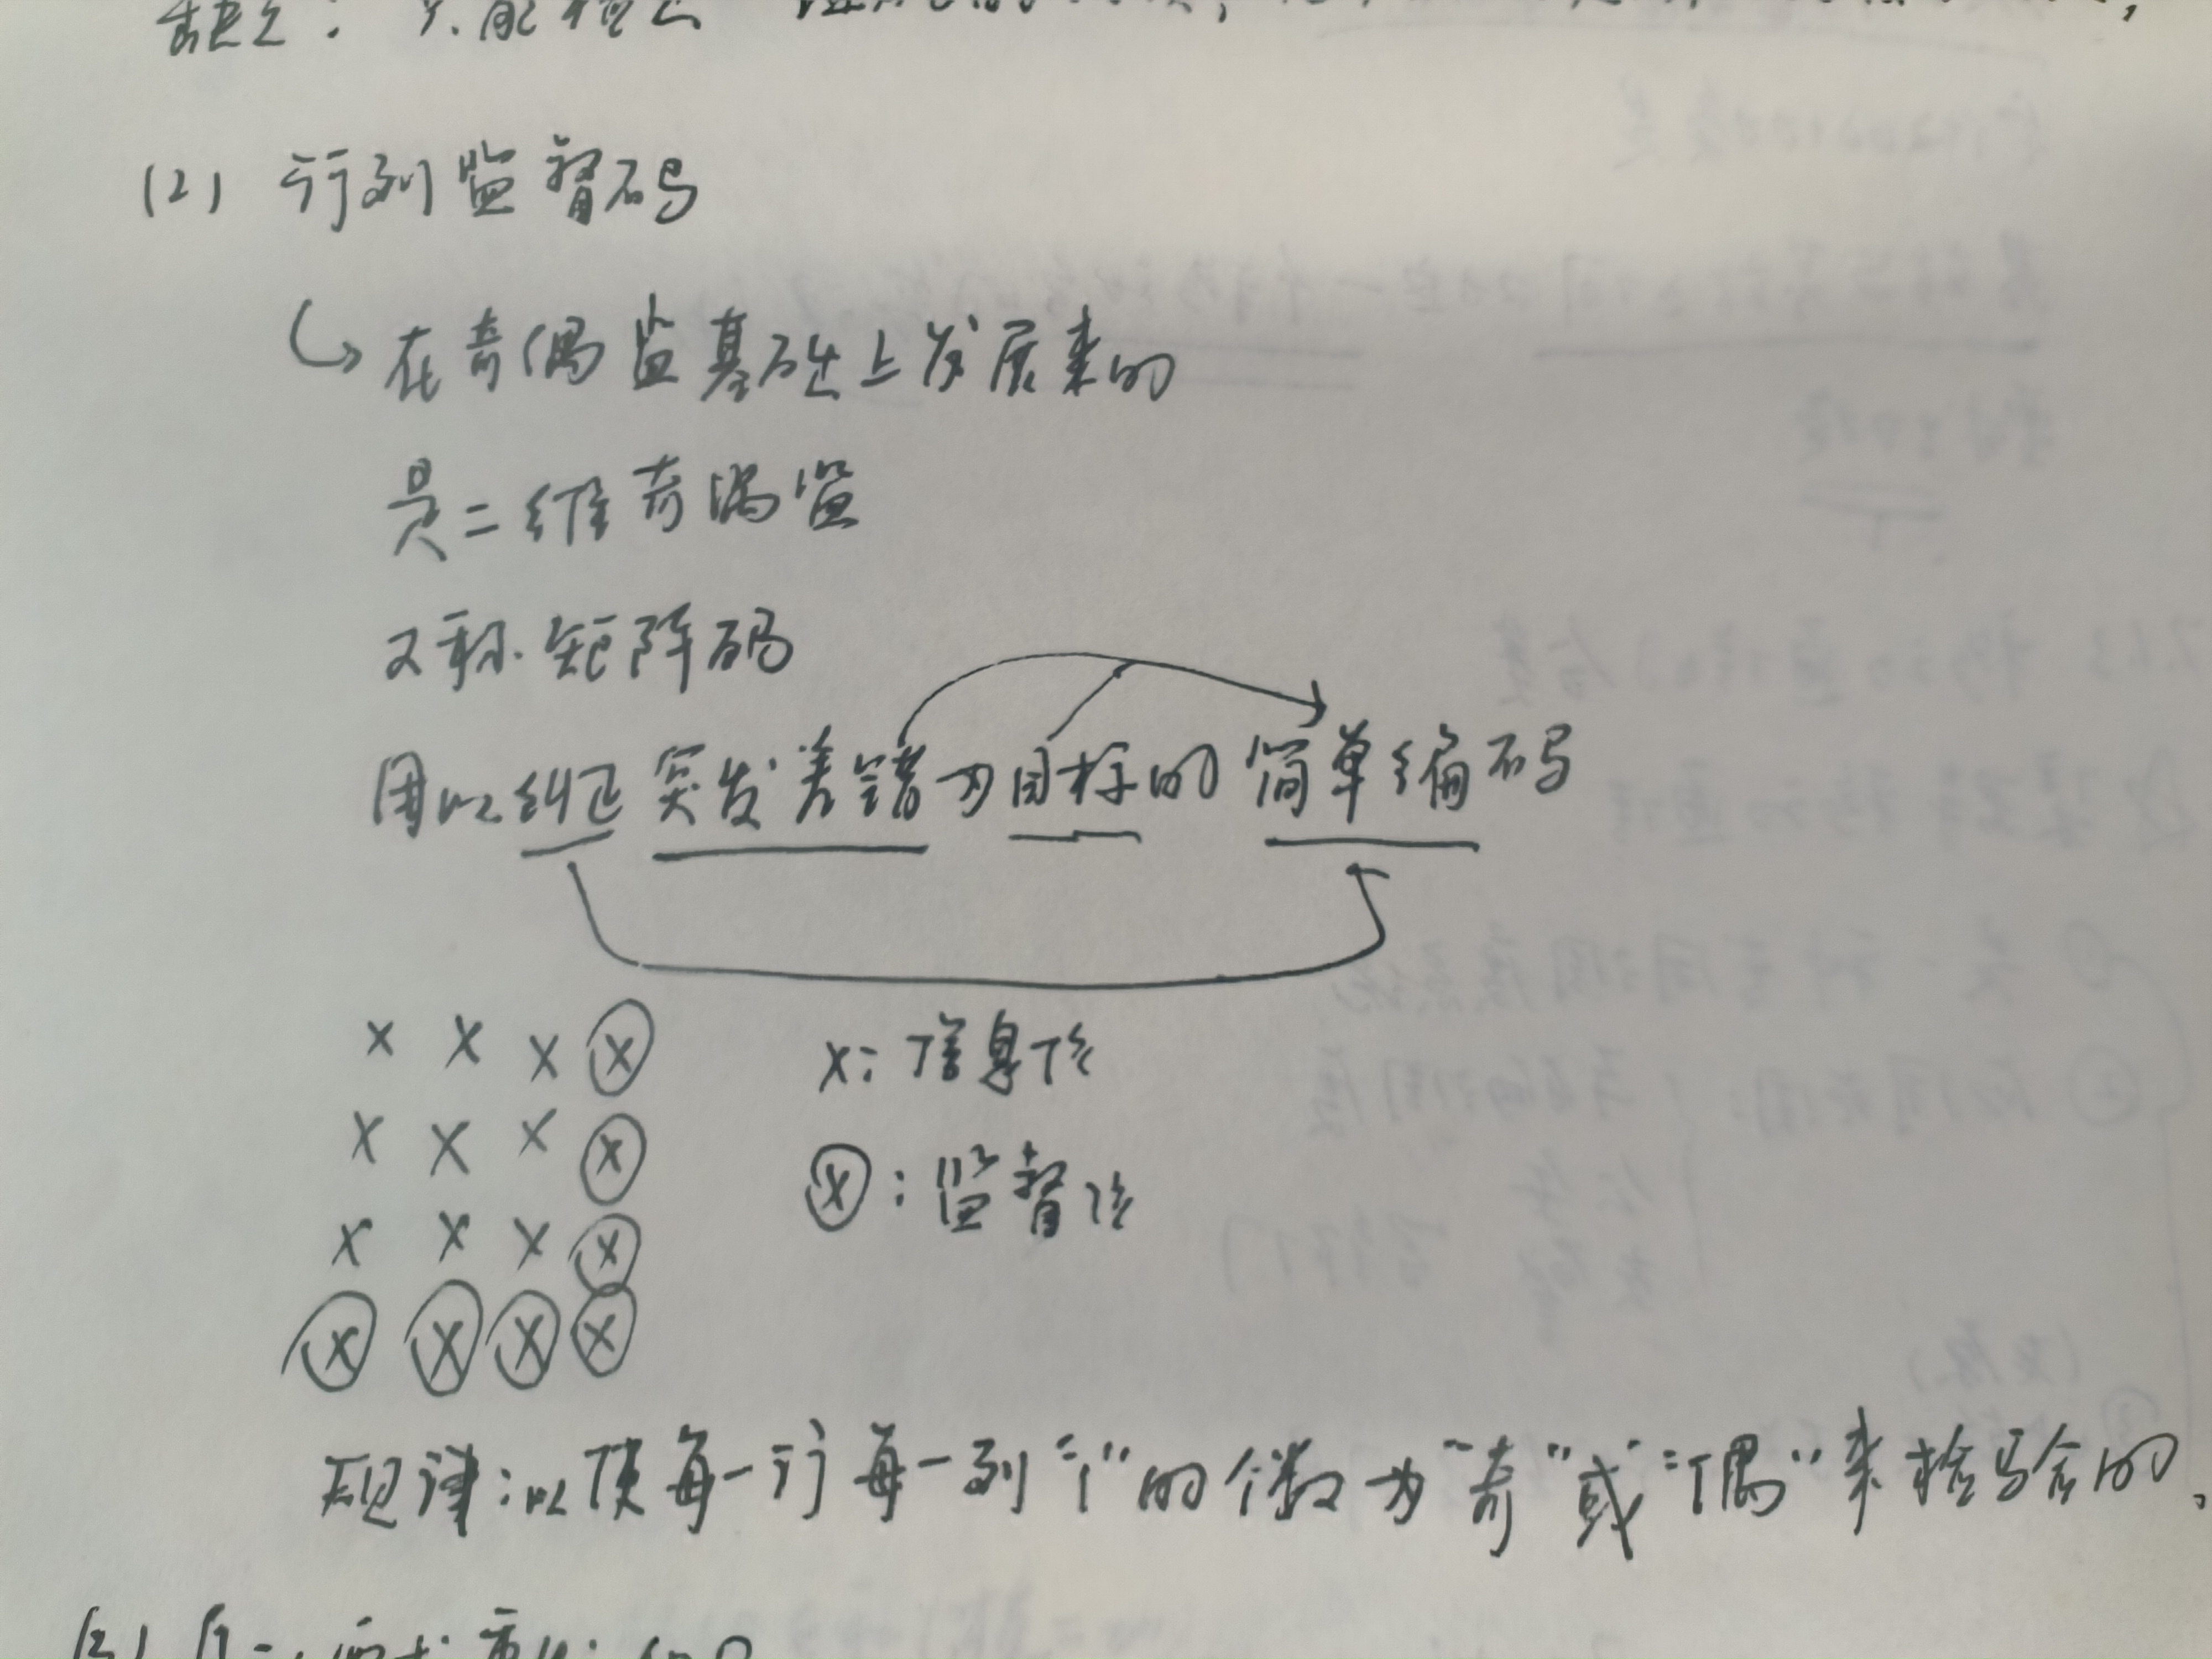 缺点：只能检
(2) 行列监督码
在奇偶监基础上发展来的
是二维奇偶监
又称矩阵码
用以纠正突发差错为目标的简单编码
x x x ⓧ x：信息位
x x x ⓧ ⓧ：监督位
x x x ⓧ
ⓧ ⓧ ⓧ ⓧ
规律：以使每一行每一列“1”的个数为“奇”或“偶”来检验的。
(3)